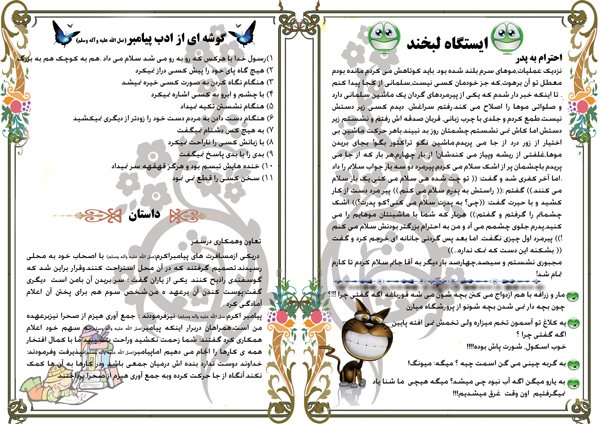 ایستگاه لبخند
احترام به پدر
نزدیک عملیات،موهای سرم بلند شده بود. باید کوتاهش می کردم.مانده بودم
معطل تو آن برهوت،که جز خودمان کسی نیست،سلمانی از کجا پیدا کنم
. تا اینکه خبر دار شدم که یکی از پیرمردهای گردان یک ماشین سلمانی دارد
و صلواتی موها را اصلاح می کند.رفتم سراغش دیدم کسی زیر دستش
نیست.طمع کردم و جلدی با چرب زبانی، قربان صدقه اش رفتم و نشستم زیر
دستش.اما کاش نمی نشستم.چشمتان روز بد نبیند.باهر حرکت ماشین بی
اختیار از زور درد از جا می پریدم.ماشین نگو تراکتور بگو! بجای بریدن
موها،غلفتی از ریشه وپیاز می کندشان! از بار چهارم،هر بار که از جا می
پریدم،باچشمان پر از اشک سلام می کردم.پیرمرد دو سه بار جواب سلام را داد
،اما آخر کفری شد و گفت (( تو چت شده هی سلام می کنی.یک بار سلام
می کنند.)) گفتم:(( راستش به پدرم سلام می کنم.)) پیر مرد دست از کار
کشید و با حیرت گفت ((چی؟ به پدرت سلام می کنی؟کو پدرت؟)) اشک
چشمانم را گرفتم و گفتم:(( هربار که شما با ماشینتان موهایم را می
کنید،پدرم جلوی چشمم می آد و من به احترام بزرگتر بودنش سلام می کنم
!)) پیرمرد اول چیزی نگفت. اما بعد پس گردنی جانانه ای خرجم کرد و گفت
(( بشکنه این دست که نمک نداره...))
مجبوری نشستم و سیصد،چهارصد بار دیگه به آقا جانم سلام کردم تا کارم
تمام شد!
مار و زرافه با هم ازدواج می کنن بچه شون می شه قورباغه اگه گفتی چرا !!!؟
چون بچه دار نمی شدن بچه شونو از پرورشگاه میارن
یه کلاغ تو آسمون تخم میزاره ولی تخمش نمی افته پایین
اگه گفتی چرا ؟
خوب اسکول. شورت پاش بوده!!!!
به گربه چینی می گن اسمت چیه ؟ میگه: میونگ!
به یارو میگن اگه آب نبود چی میشد؟ میگه هیچی ما شنا یاد
نمیگرفتیم اون وقت غرق میشدیم!!!
گوشه ای از ادب پیامبر(صل الله علیه وآله وسلم)
۱)رسول خدا با هرکس که رو به رو می شد سلام می داد .هم به کوچک هم به بزرگ
۲) هیچ گاه پای خود را پیش کسی دراز نمیکرد
۳) هنگام نگاه کردن به صورت کسی خیره نمیشد
۴) با چشم و ابرو به کسی اشاره نمیکرد
۵) هنگام نشستن تکیه نمیداد
۶) هنگام دست دادن به مردم دست خود را زودتر از دیگری نمیکشید
۷) به هیچ کس دشنام نمیگفت
۸) با زبانش کسی را ناراحت نمیکرد
۹) بدی را با بدی پاسخ نمیگفت
۱۰) خنده هایش تبسم بود و هرگز قهقهه سر نمیداد
۱۱) سخن کسی را قطع نمی نمود
داستان
تعاون وهمکاری درسفر
دریکی ازمسافرت های پیامبراکرم(صل الله علیه وآله وسلم) با اصحاب خود به محلی
رسیدند.تصمیم گرفتند که در آن محل استراحت کنند.وقرار براین شد که
گوسفندی راذبح کنند. یکی از یاران گفت : سر بریدن آن بامن است دیگری
گفت:پوست کندن آن برعهده من.شخص سوم هم برای پختن آن اعلام
آمادگی کرد.
پیامبر اکرم(صل الله علیه وآله وسلم) نیزفرمودند : جمع آوری هیزم از صحرا نیزبرعهده
من است.همراهان دربرابر اینکه پیامبر(صل الله علیه وآله وسلم) سهم خود اعلام
همکاری کرد گفتند: شما زحمت نکشید وراحت بنشینید ما با کمال افتخار
همه ی کارها را انجام می دهیم اماپیامبر(صل الله علیه وآله وسلم) نپذیرفت وفرمودند:
خداوند دوست ندارد بنده اش درمیان جمعی باشد ودر کارها به آن ها کمک
نکند.آنگاه از جا حرکت کرده وبه جمع آوری هیزم از صحرا پرداختند.